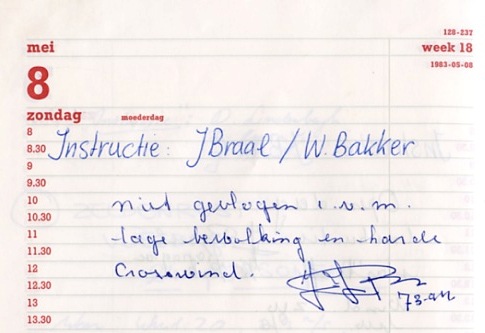 128-237
mei week 18
8 1983-05-08
zondag moederdag
8
8.30 Instructie: J Braal / W. Bakker
9
9.30
10 niet gevlogen i.v.m.
10.30
11 lage bewolking en harde
11.30
12 Crosswind.
12.30
13
13.30